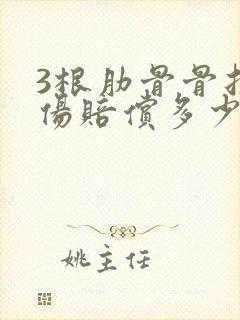 3根肋骨骨折
伤赔偿多少
姚主任